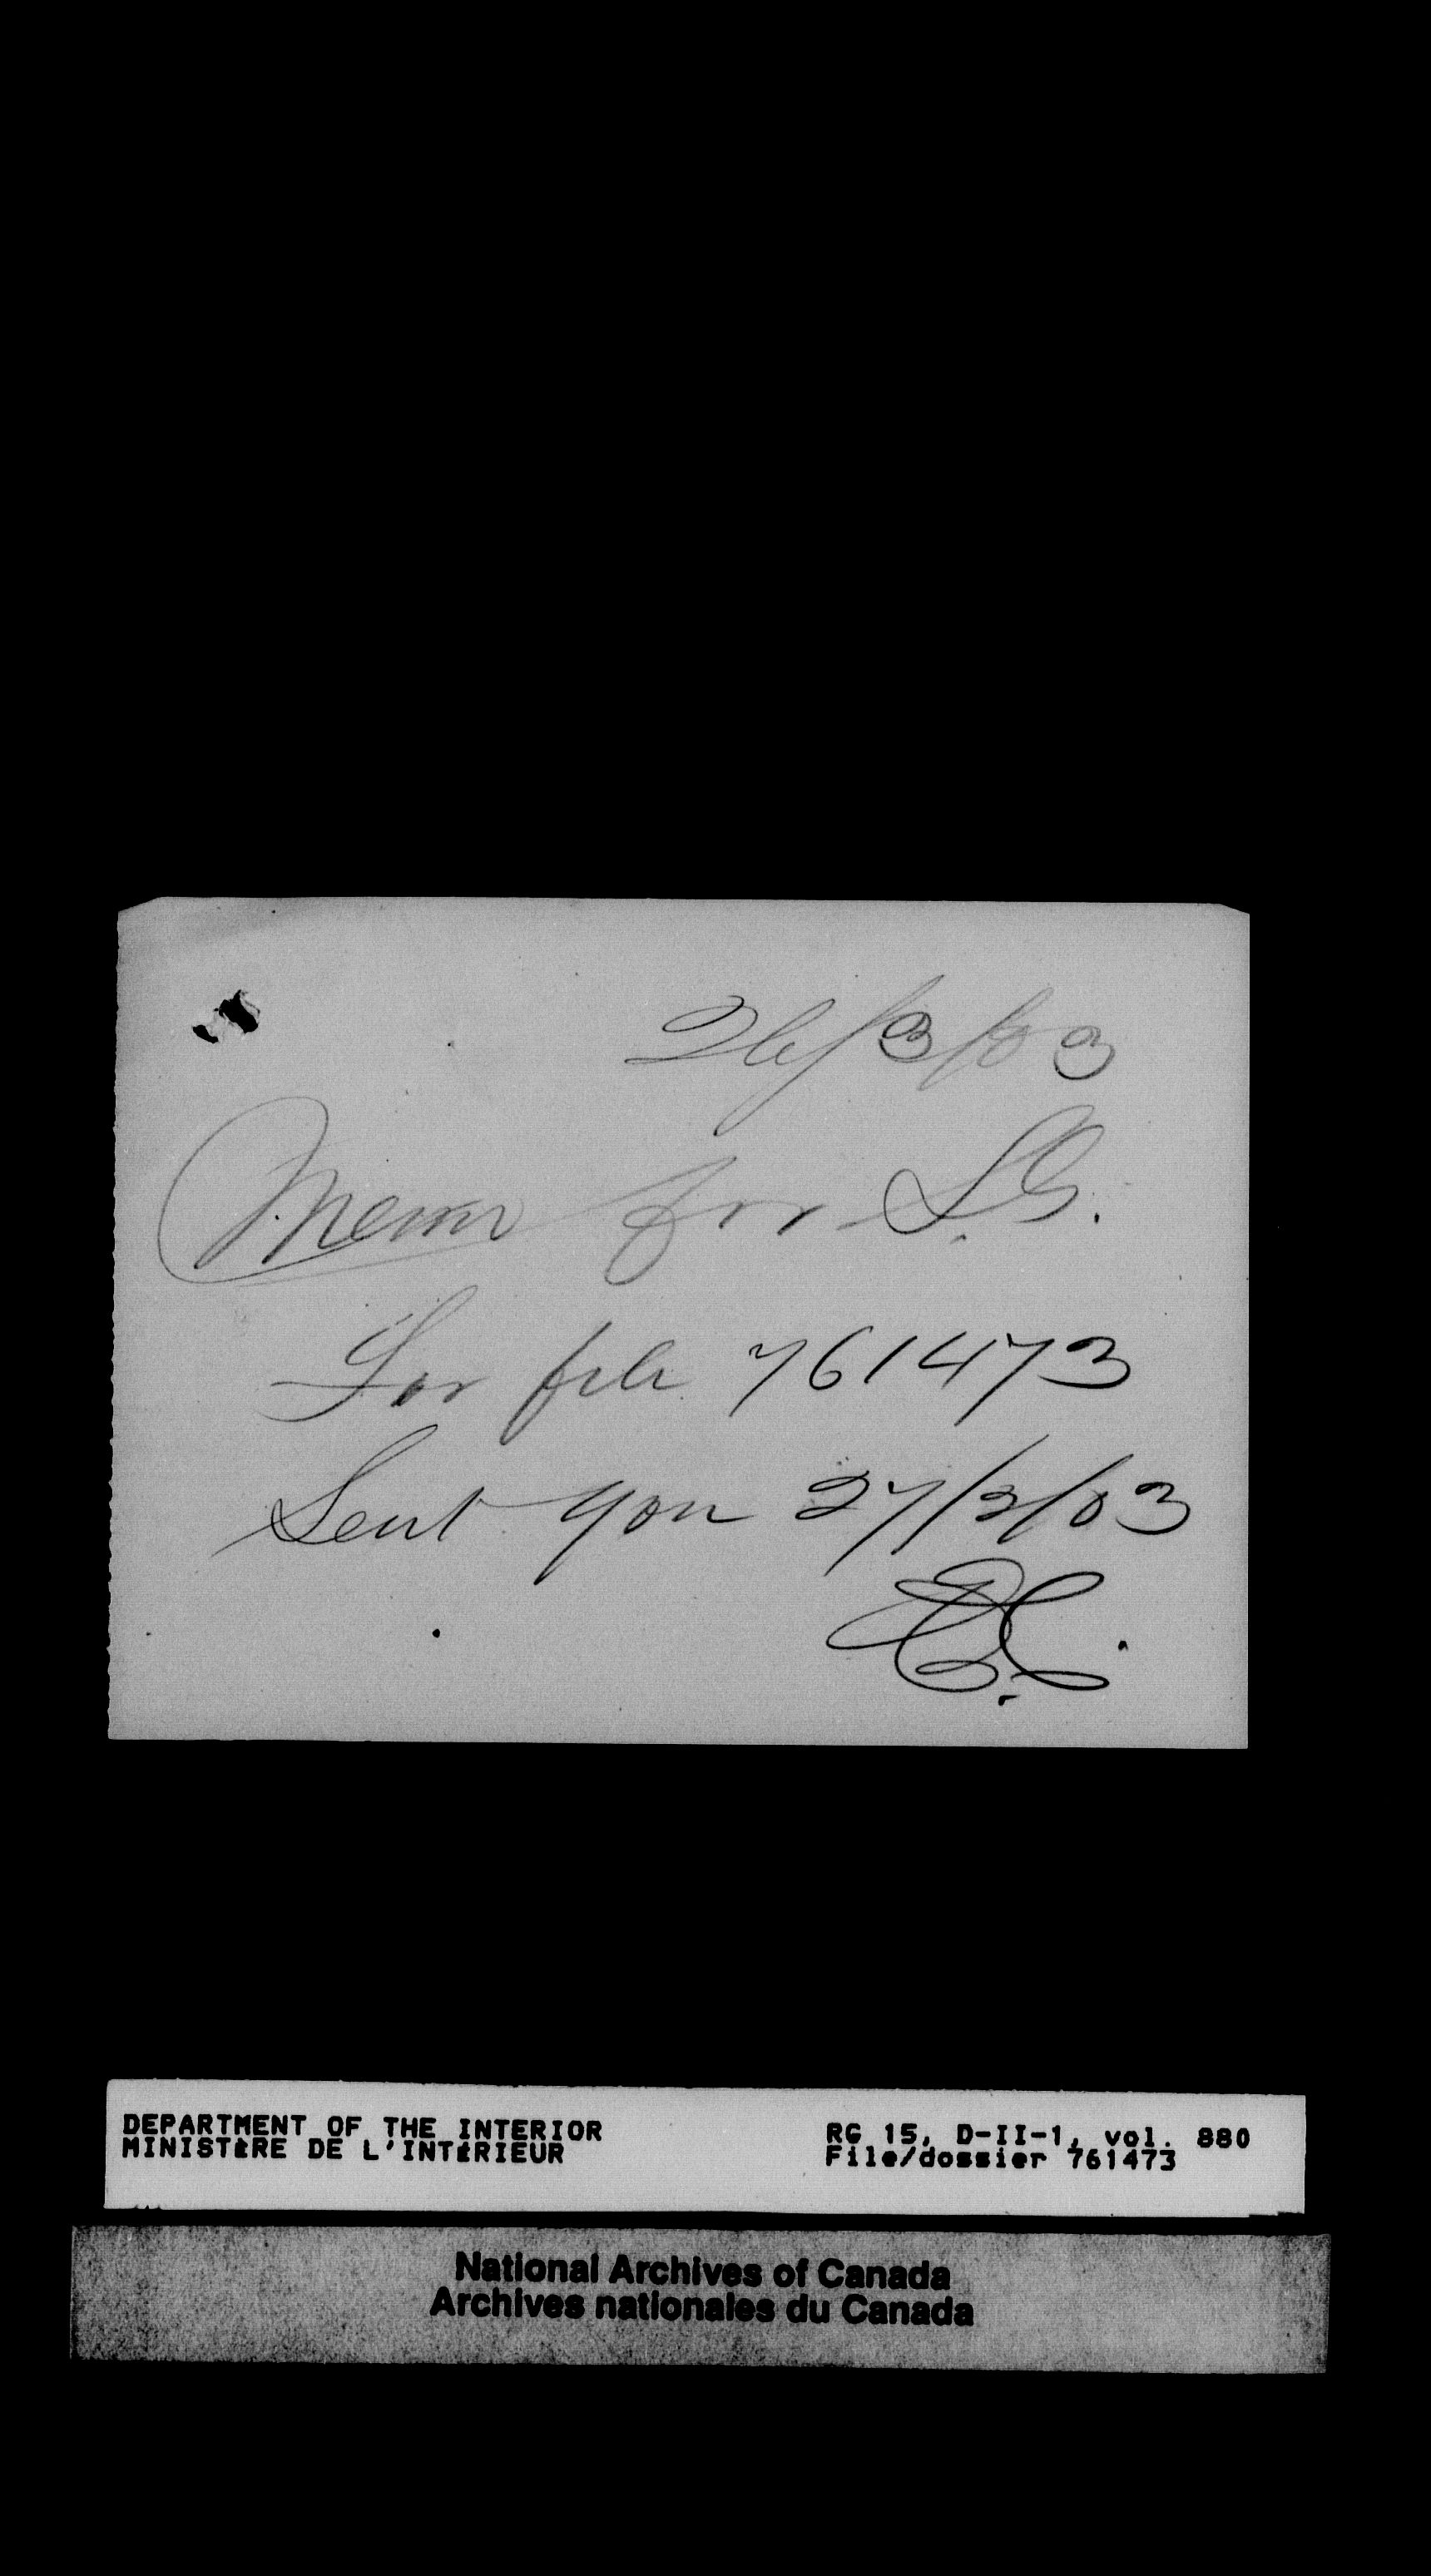 26/3/03
Memo for S.G.
For file 761473
Sent you 27/3/03
DEPARTMENT OF THE INTERIOR
MINISTÈRE DE L'INTÉRIEUR
RG 15, D-II-1, vol. 880
File/dossier 761473
National Archives of Canada
Archives nationales du Canada